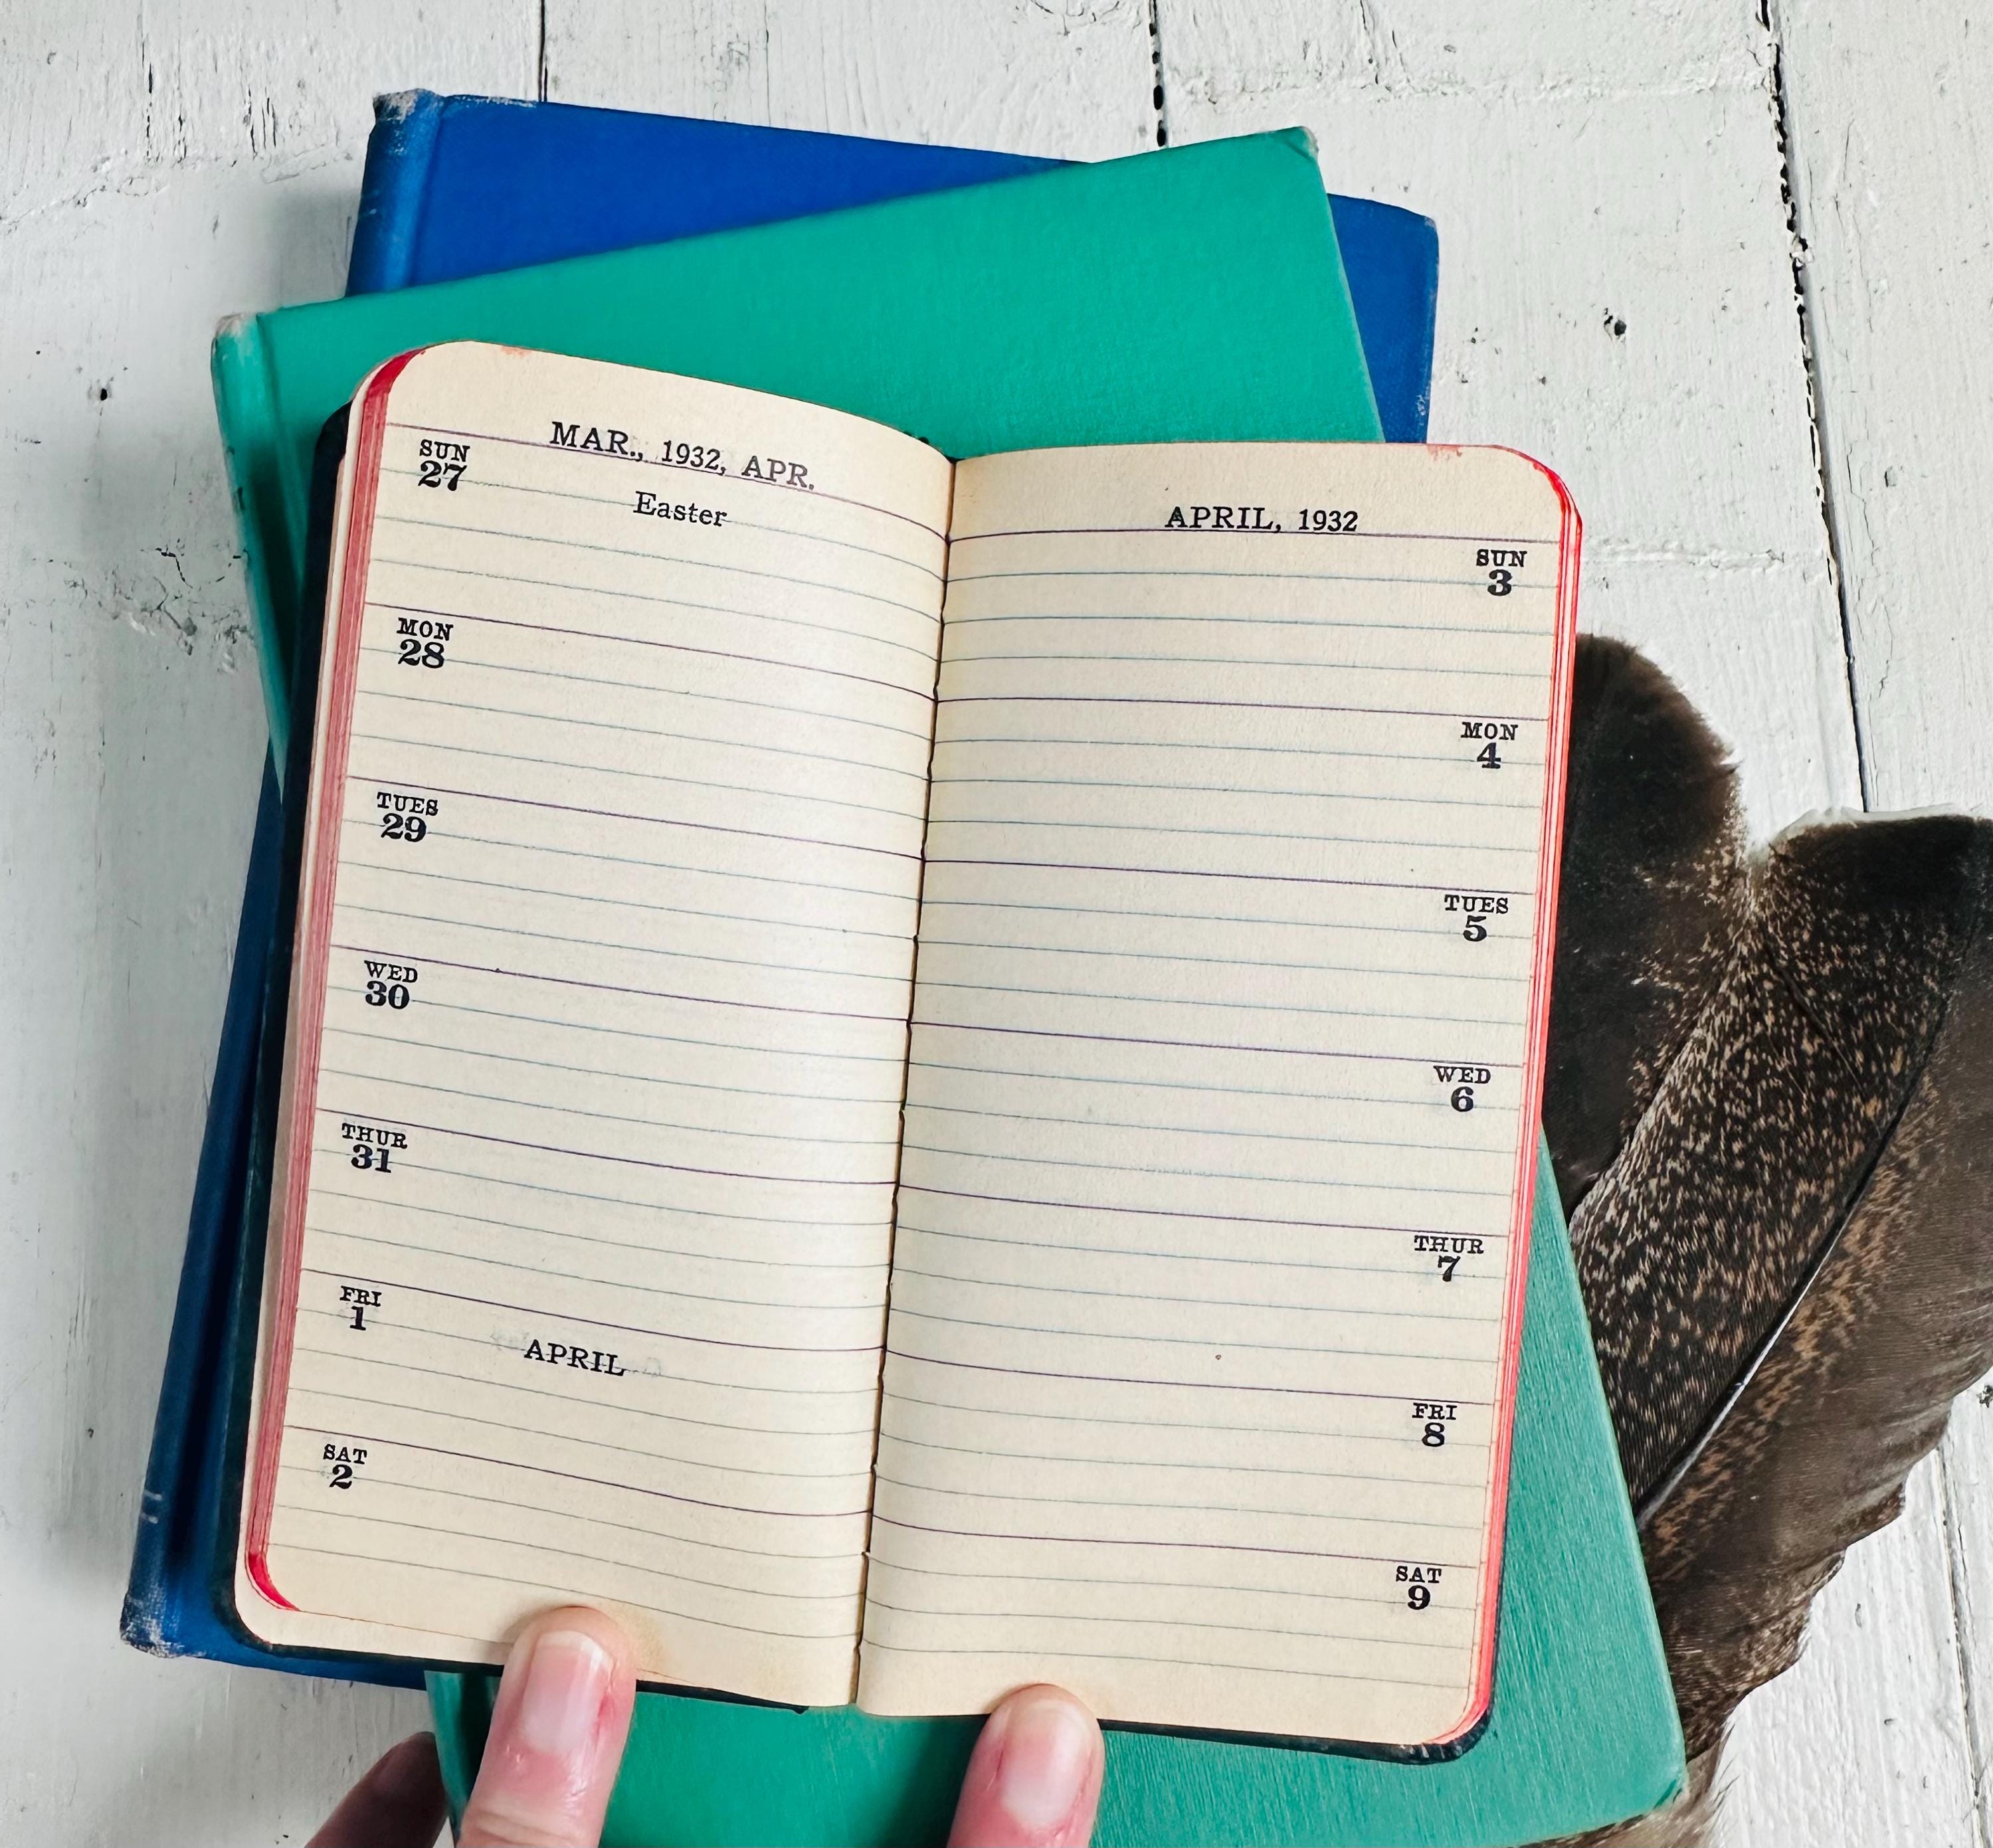 MAR., 1932, APR.
SUN
27
Easter
MON
28
TUES
29
WED
30
THUR
31
FRI
1
APRIL
SAT
2
APRIL, 1932
SUN
3
MON
4
TUES
5
WED
6
THUR
7
FRI
8
SAT
9